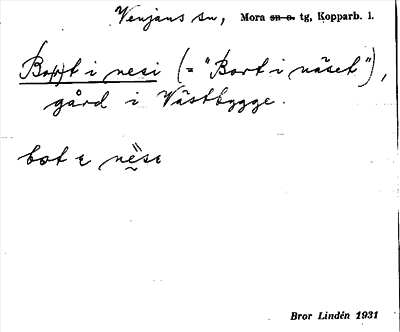 Venjans sn, Mora sn o. tg, Kopparb. l.
Bo(r)t i nesi (= "Bort i näset"),
gård i Västbygge.
bot
Bror Lindén 1931